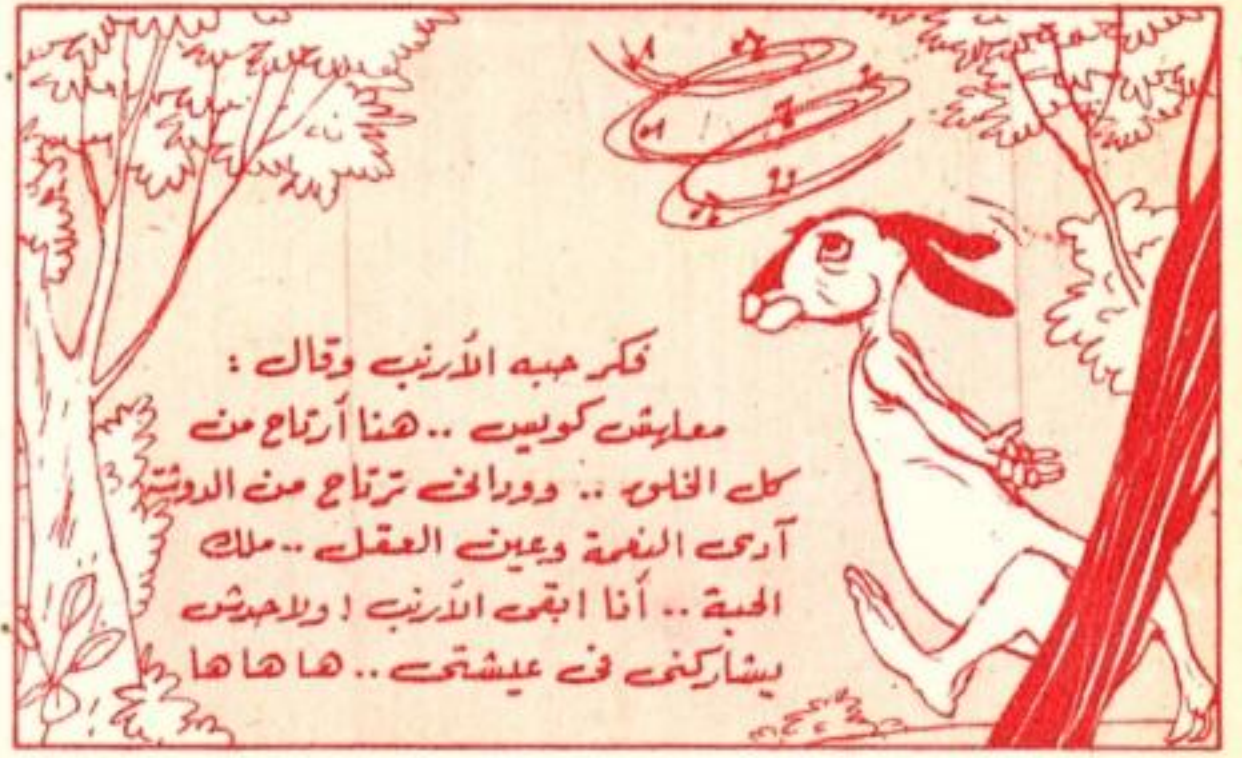 فكر حبه الأرنب وقال :
معلهش كويس .. هنا أرتاح من
كل الخلق .. ووداني ترتاح من الدوشة
آدى النعمة وعين العقل .. ملك
الحبة .. أنا ابقى الأرنب ! ولاحدش
يشاركنى فى عيشتى .. ها ها ها